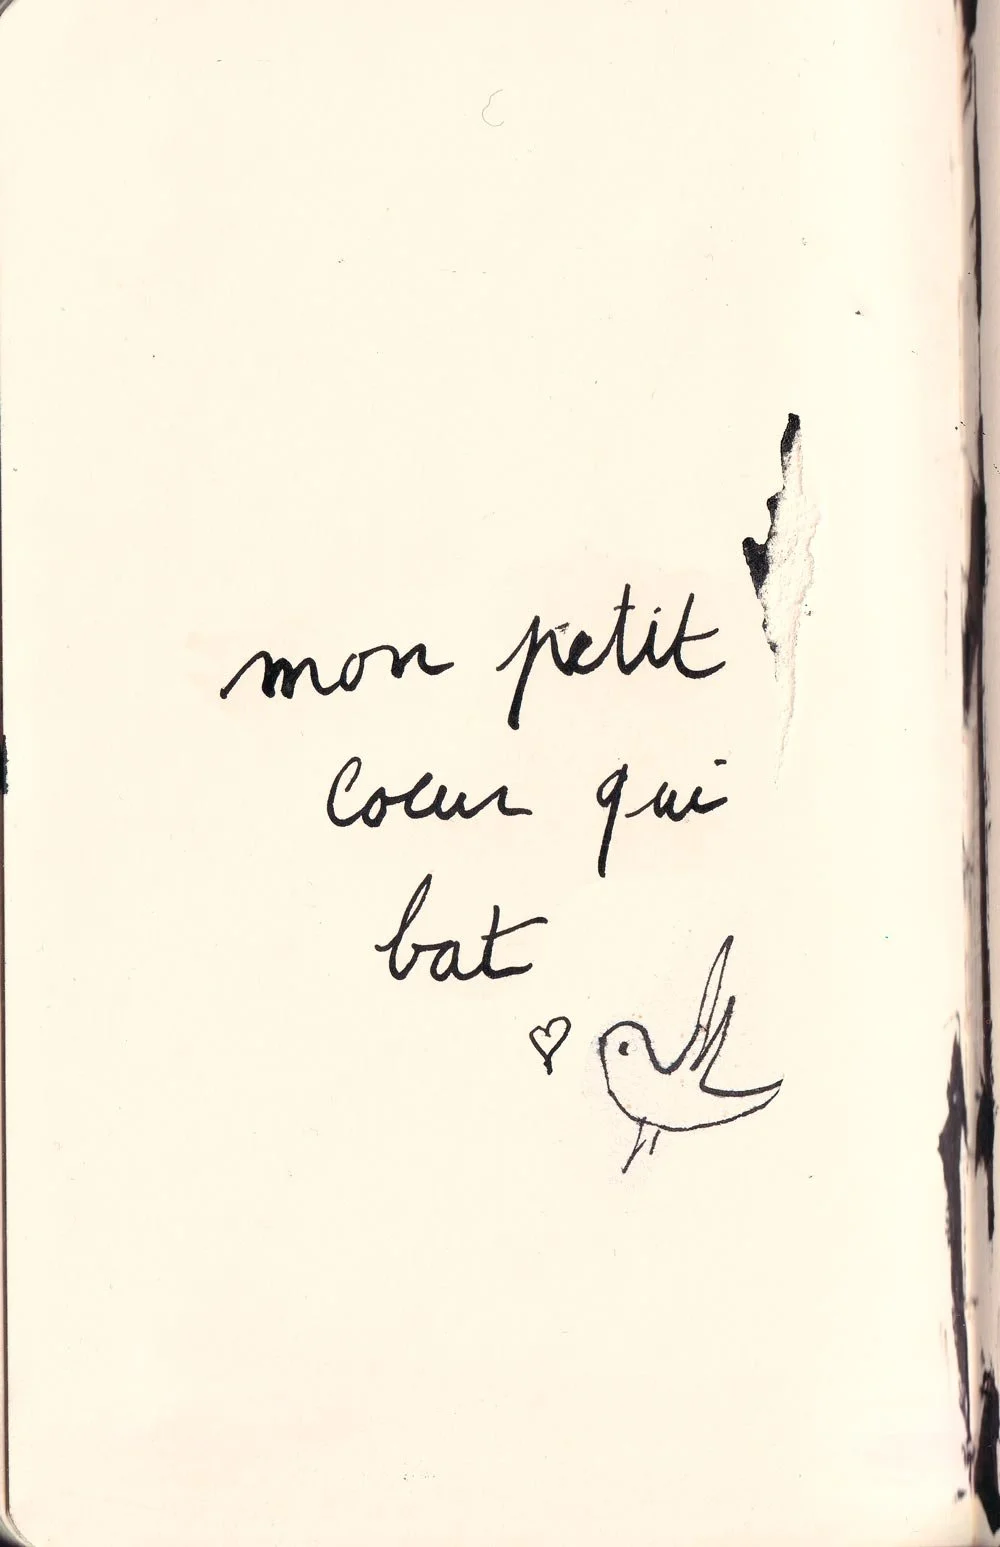 mon petit
coeur qui
bat